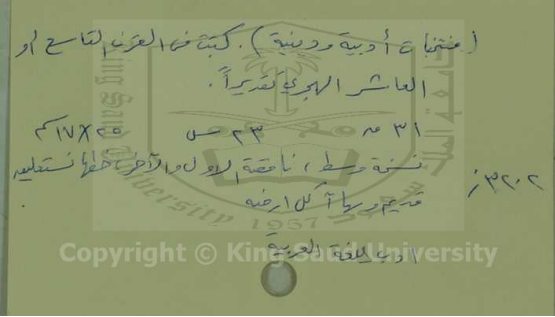 (منتخبات أدبية ودينية). كتبت في القرن التاسع أو
العاشر الهجري تقديراً.
٣١ ق ٢٣ س ٢٥×١٧ سم
نسخة وسط، ناقصة الأول والآخر، خطها نستعليق
٣٢٠٢ / قديم وبها آكل ارضه
ادب اللغة العربية
Copyright © King Saud University
1957